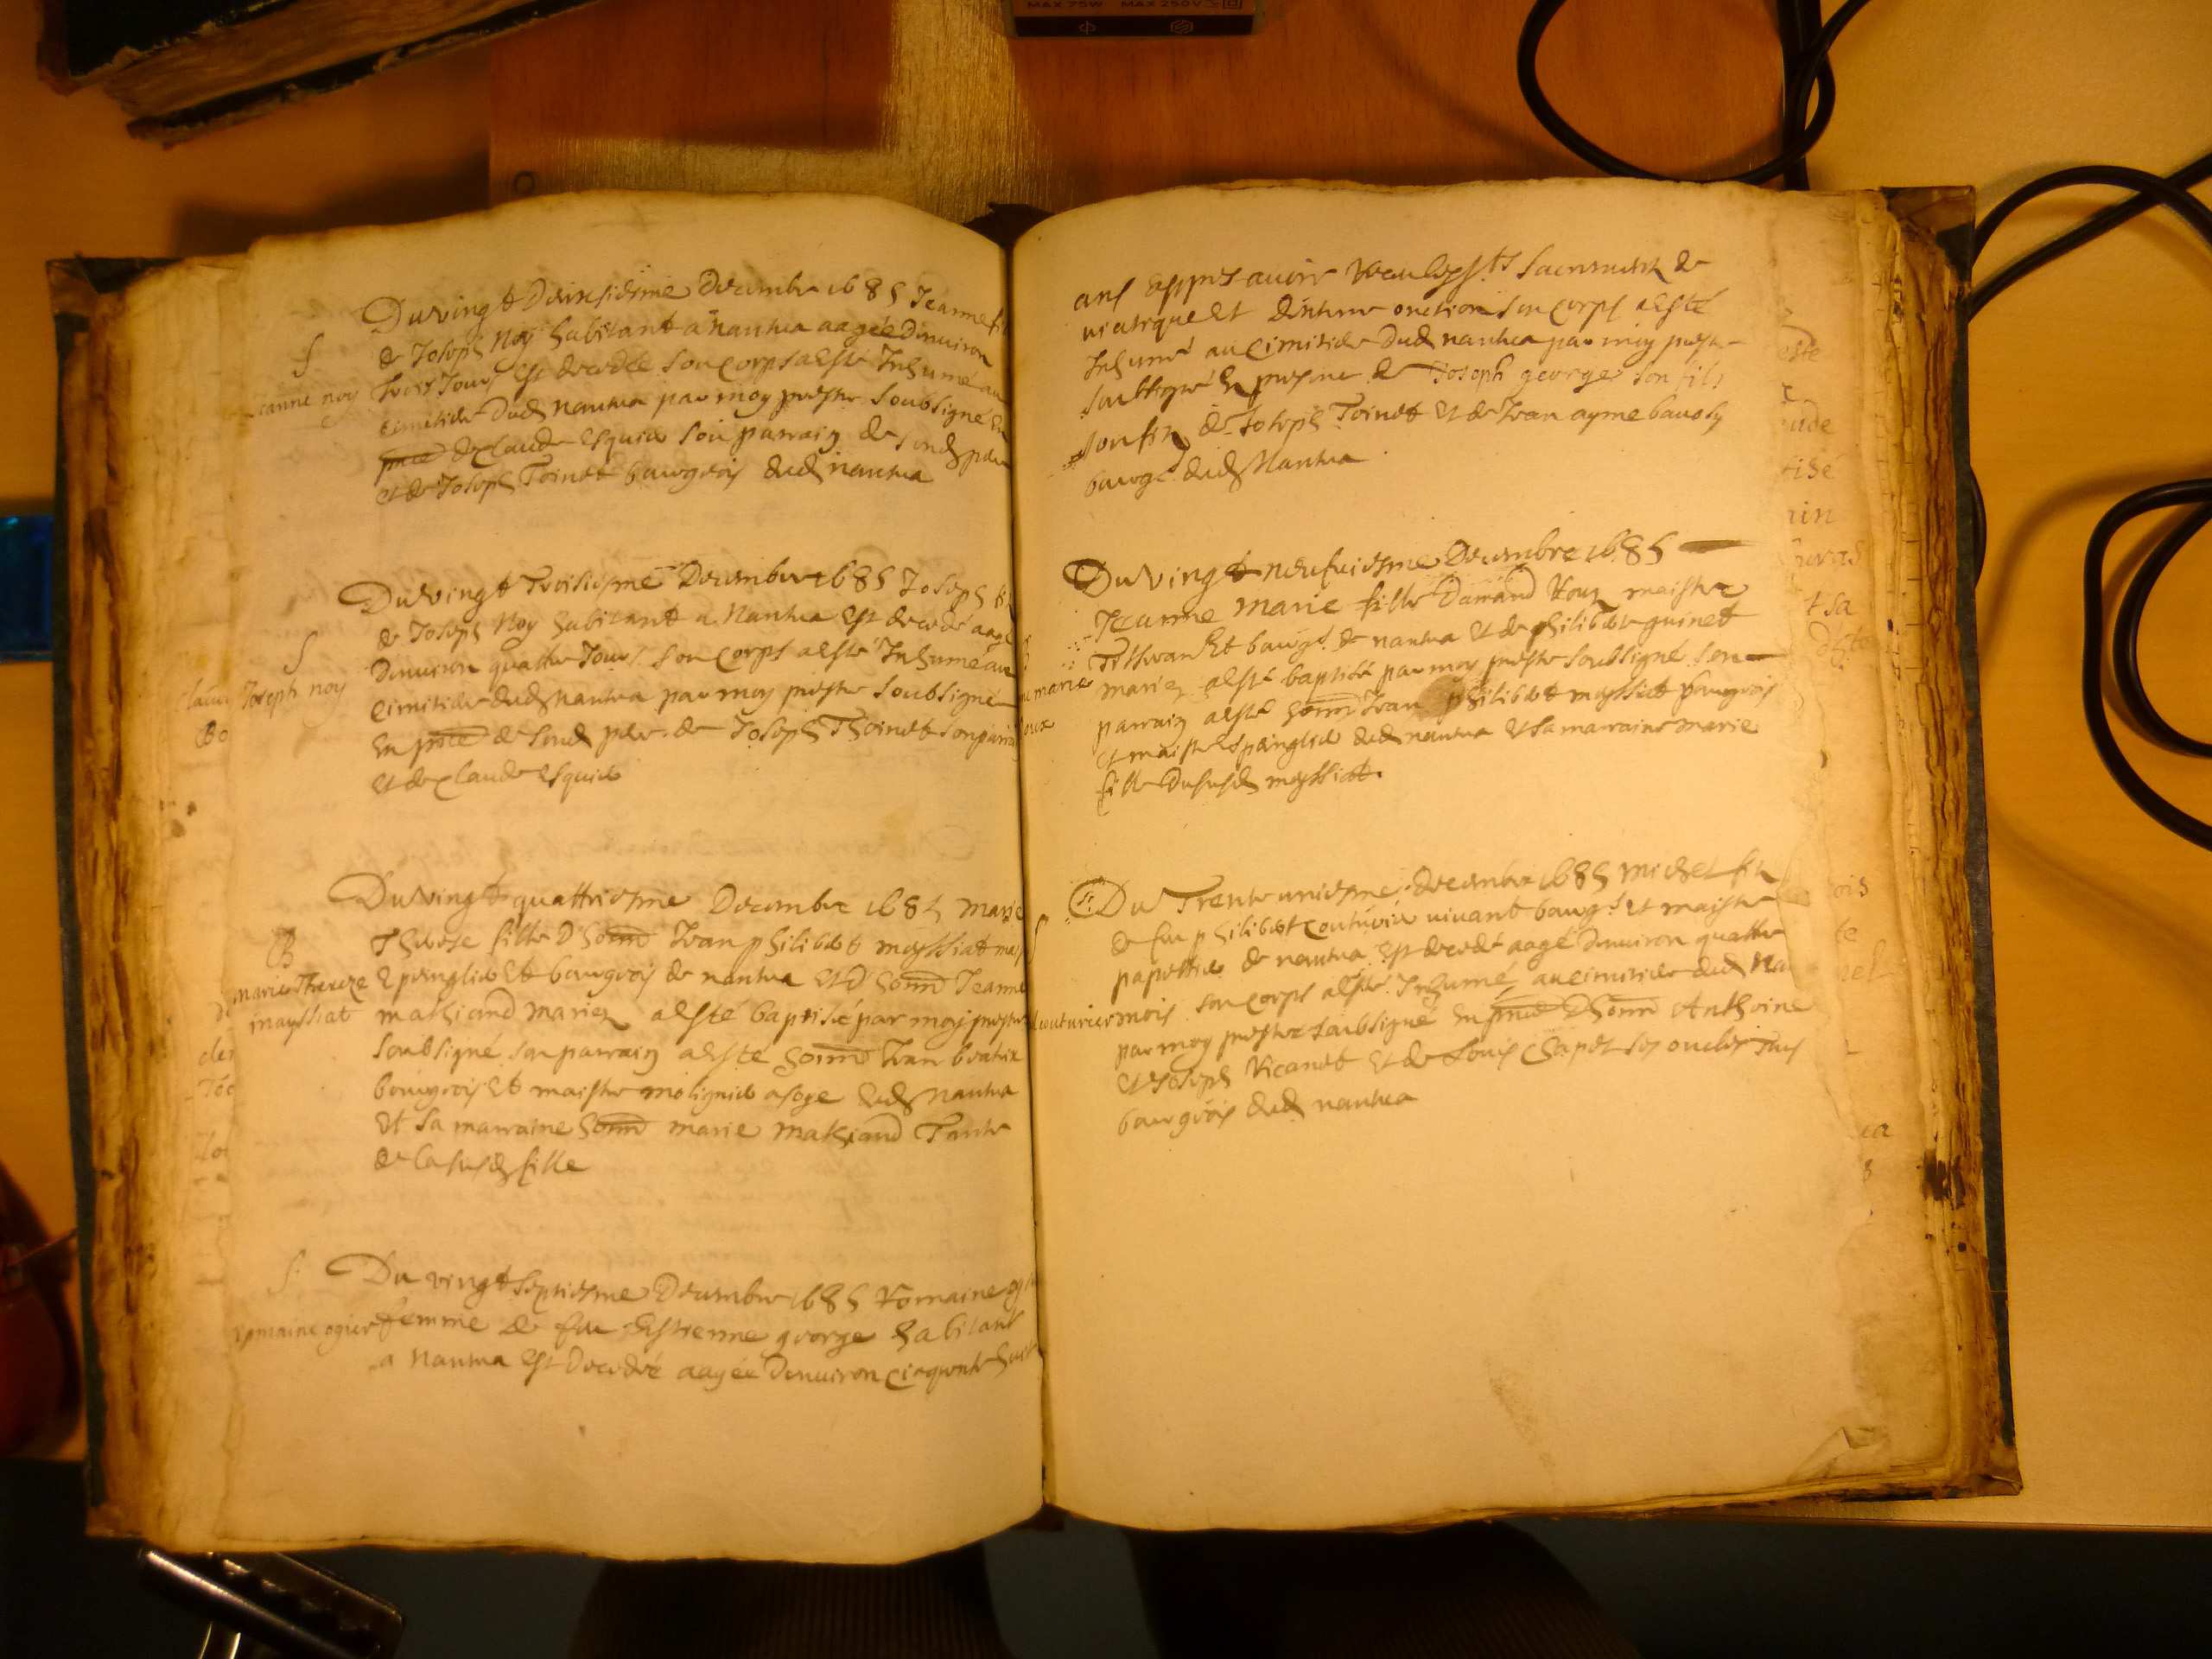 MAX 75W MAX 250V
Du vingt Deuxsiesme Decembre 1685 Jeanne fi
S
de Joseph Noy habitant a nantua aagée Denuiron
Jeanne noy
trois Jours est decedée son corps a esté Inhumé au
cimitiere dud nantua par moy prestre soubsigné En
pnce de Claude Esquier son parrain de sond pere
et de Joseph Toinet bourgeois dud nantua
Du vingt Troisiesme Decembre 1685 Joseph fi
de Joseph Noy habitant a Nantua est decedé aagé
S
Denuiron quattre Jours son corps a esté Inhumé au
Joseph noy
cimitiere dud nantua par moy prestre soubsigné
En pnce de sond pere de Joseph Thoinet son parrain
et de Claude Esquier
Du vingt quattriesme Decembre 1685 marie
B
Therese fille D honn Jean philibert moyssiat
marie Thereze
Epinglier et bourgeois de nantua et D honn Jeanne
mathiand mariez a esté baptisé par moy prestre
soubsigné son parrain a esté honn Jean beatrix
bourgeois et maistre dud nantua
et sa marraine honn marie mathiand Tante
de la susd fille
S
Du vingt septiesme Decembre 1685 Romaine
Romaine ogier
femme de feu Estienne george habitant
a nantua est decedée aagée Denuiron cinquante huit
ans appres auoir receu les sts sacrements de
viatique et dextreme onction son corps a esté
Inhumé au cimitiere dud nantua par moy prestre
soubsigné En presence de Joseph george son fils
de Joseph Toinet et de Jean ayme
bourg. dud Nantua
Du vingt neufuiesme Decembre 1685
Jeanne marie fille Damand Roux maistre
Tisseran et bourg. de nantua et de philiberte guinet
marie
mariez a esté baptisé par moy prestre soubsigné son
roux
parrain a esté honn Jean philibert moyssiat bourgeois
et maistre Epinglier dud nantua et sa marraine marie
fille du susd moyssiat.
Du Trente uniesme Decembre 1685 michel fils
de feu philibert couturier viuant bourg. et maistre
papettier de nantua est decedé aagé denuiron quattre
couturier
mois son corps a esté Inhumé au cimitiere dud Na
par moy prestre soubsigné En pnce D honn Anthoine
et Joseph Ricanet et de Louis Chapel ses oncles Tous
bourgeois dud nantua